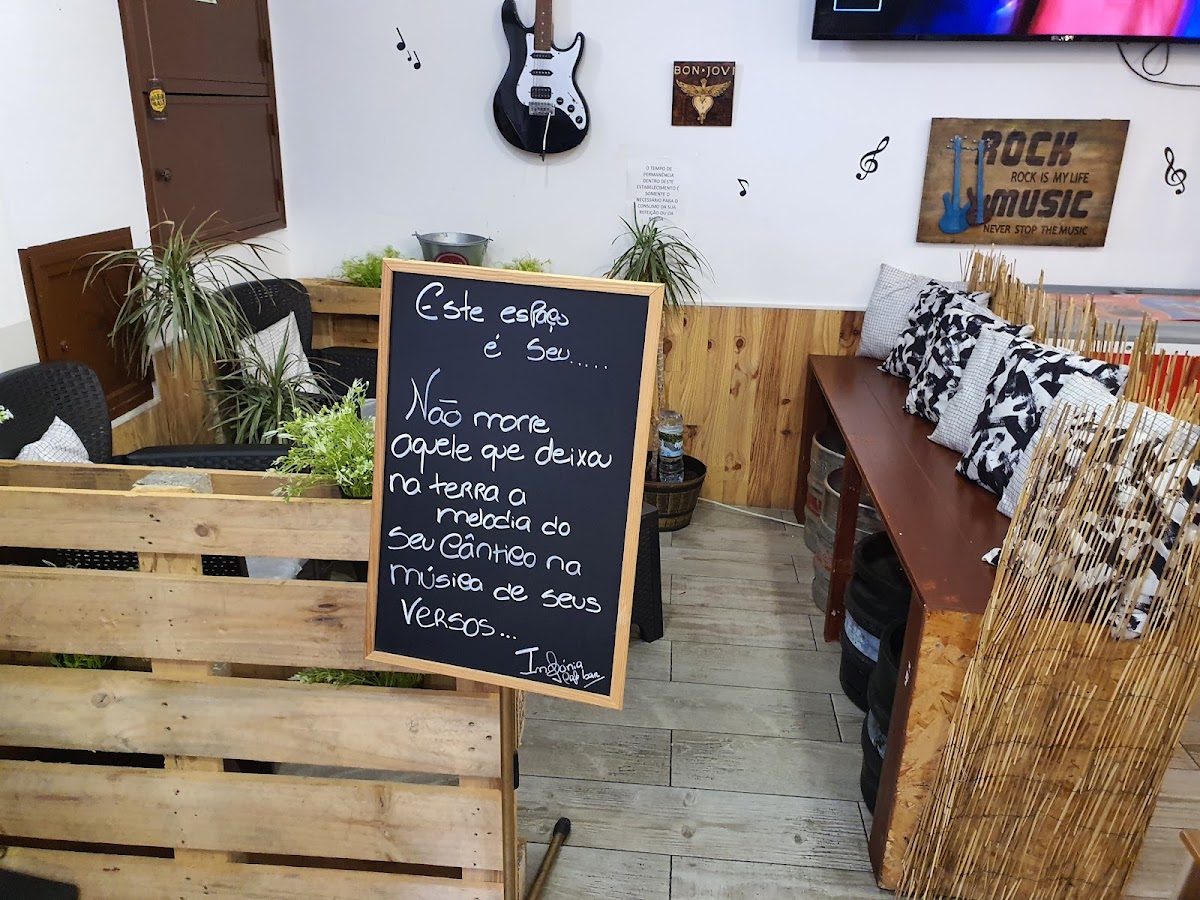 BON JOVI
O TEMPO DE
PERMANÊNCIA
DENTRO DESTE
ESTABELECIMENTO É
SOMENTE O
NECESSÁRIO PARA O
CONSUMO DA SUA
REFEIÇÃO OU DA
ROCK
ROCK IS MY LIFE
MUSIC
NEVER STOP THE MUSIC
Este espaço
é seu.....
Não morre
aquele que deixou
na terra a
melodia do
seu Cântico na
música de seus
versos...
Café bar